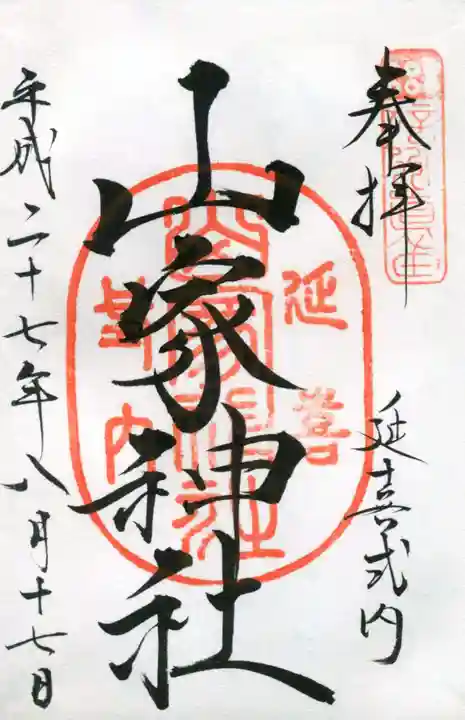 奉拝
延喜式内
山家神社
延喜
式内
山家神社
平成二十七年八月十七日